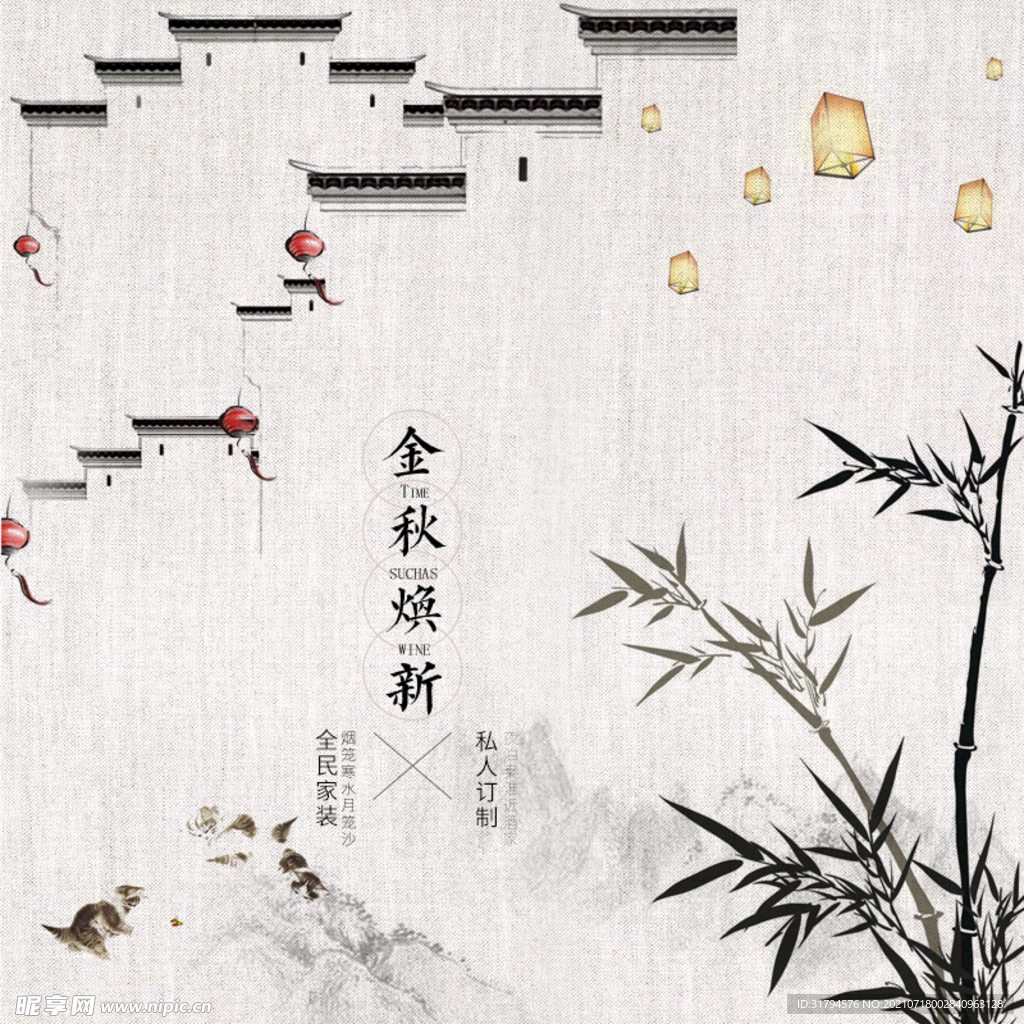 金
TIME
秋
SUCHAS
焕
WINE
新
全民家装
烟笼寒水月笼沙
私人订制
夜泊秦淮近酒家
昵享网 www.nipic.cn
ID:31794576 NO:20210718002840963128